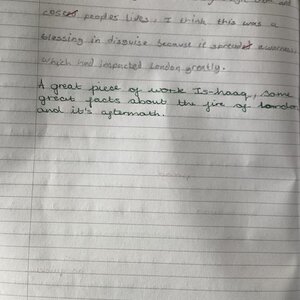 cosed peoples lives. I think this was a
blessing in disguise because it spreaded awarness
which had impacted London greatly.
A great piece of work Is-haaq, some
great facts about the fire of London
and it's aftermath.